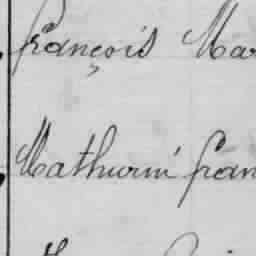 françois Mar
Mathurin fran